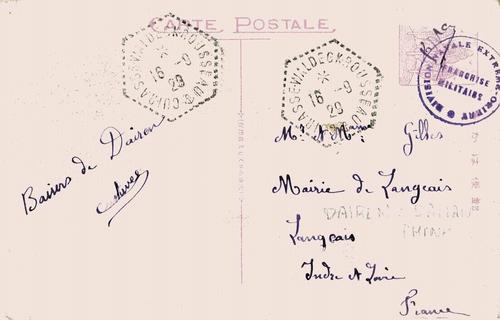 CARTE POSTALE
CUIRASSÉ WALDECK ROUSSEAU
16 -9
29
CUIRASSÉ WALDECK ROUSSEAU
16 -9
29
DIVISION NAVALE EXTREME-ORIENT
FRANCHISE
MILITAIRE
Baisers de Dairen
Mr & Mme Gilles
Mairie de Langeais
DAIREN DALIAN
CHINE
Langeais
Indre et Loire
France